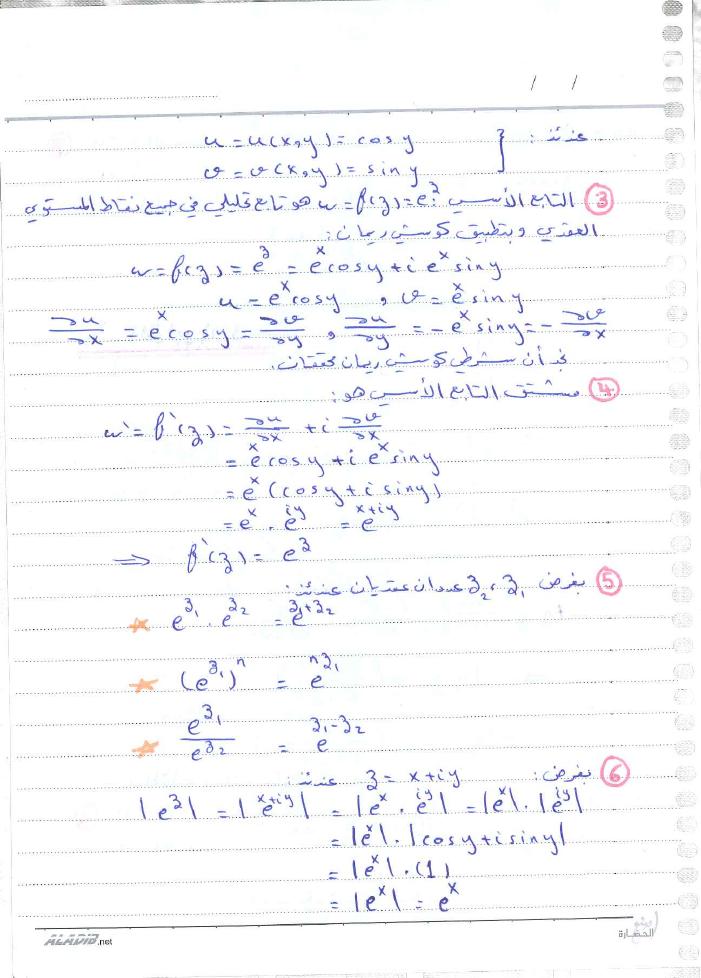 / /
عندئذ: } u = u(x,y) = cos y
v = v(x,y) = sin y
③ التابع الأسي w = f(z) = e^z هو تابع تحليلي في جميع نقاط المستوي
العقدي وبتطبيق كوشي ريمان:
w = f(z) = e^z = e^x cos y + i e^x sin y
u = e^x cos y , v = e^x sin y
∂u/∂x = e^x cos y = ∂v/∂y , ∂u/∂y = -e^x sin y = -∂v/∂x
نجد أن شرطي كوشي ريمان محققتان.
④ مشتق التابع الأسي هو:
w' = f'(z) = ∂u/∂x + i ∂v/∂x
= e^x cos y + i e^x sin y
= e^x (cos y + i sin y)
= e^x . e^iy = e^x+iy
⇒ f'(z) = e^z
⑤ بفرض z₁ , z₂ عددان عقديان عندئذ:
★ e^z₁ . e^z₂ = e^z₁+z₂
★ (e^z₁)^n = e^nz₁
★ e^z₁ / e^z₂ = e^z₁-z₂
⑥ بفرض: z = x+iy عندئذ:
|e^z| = |e^x+iy| = |e^x . e^iy| = |e^x| . |e^iy|
= |e^x| . |cos y + i sin y|
= |e^x| . (1)
= |e^x| = e^x
ALADIB.net
الحضارة